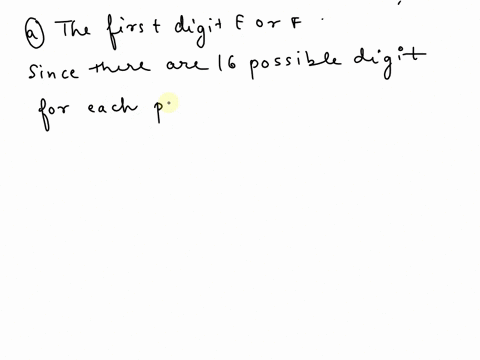 (a) The first digit E or F.
Since there are 16 possible digit
for each p